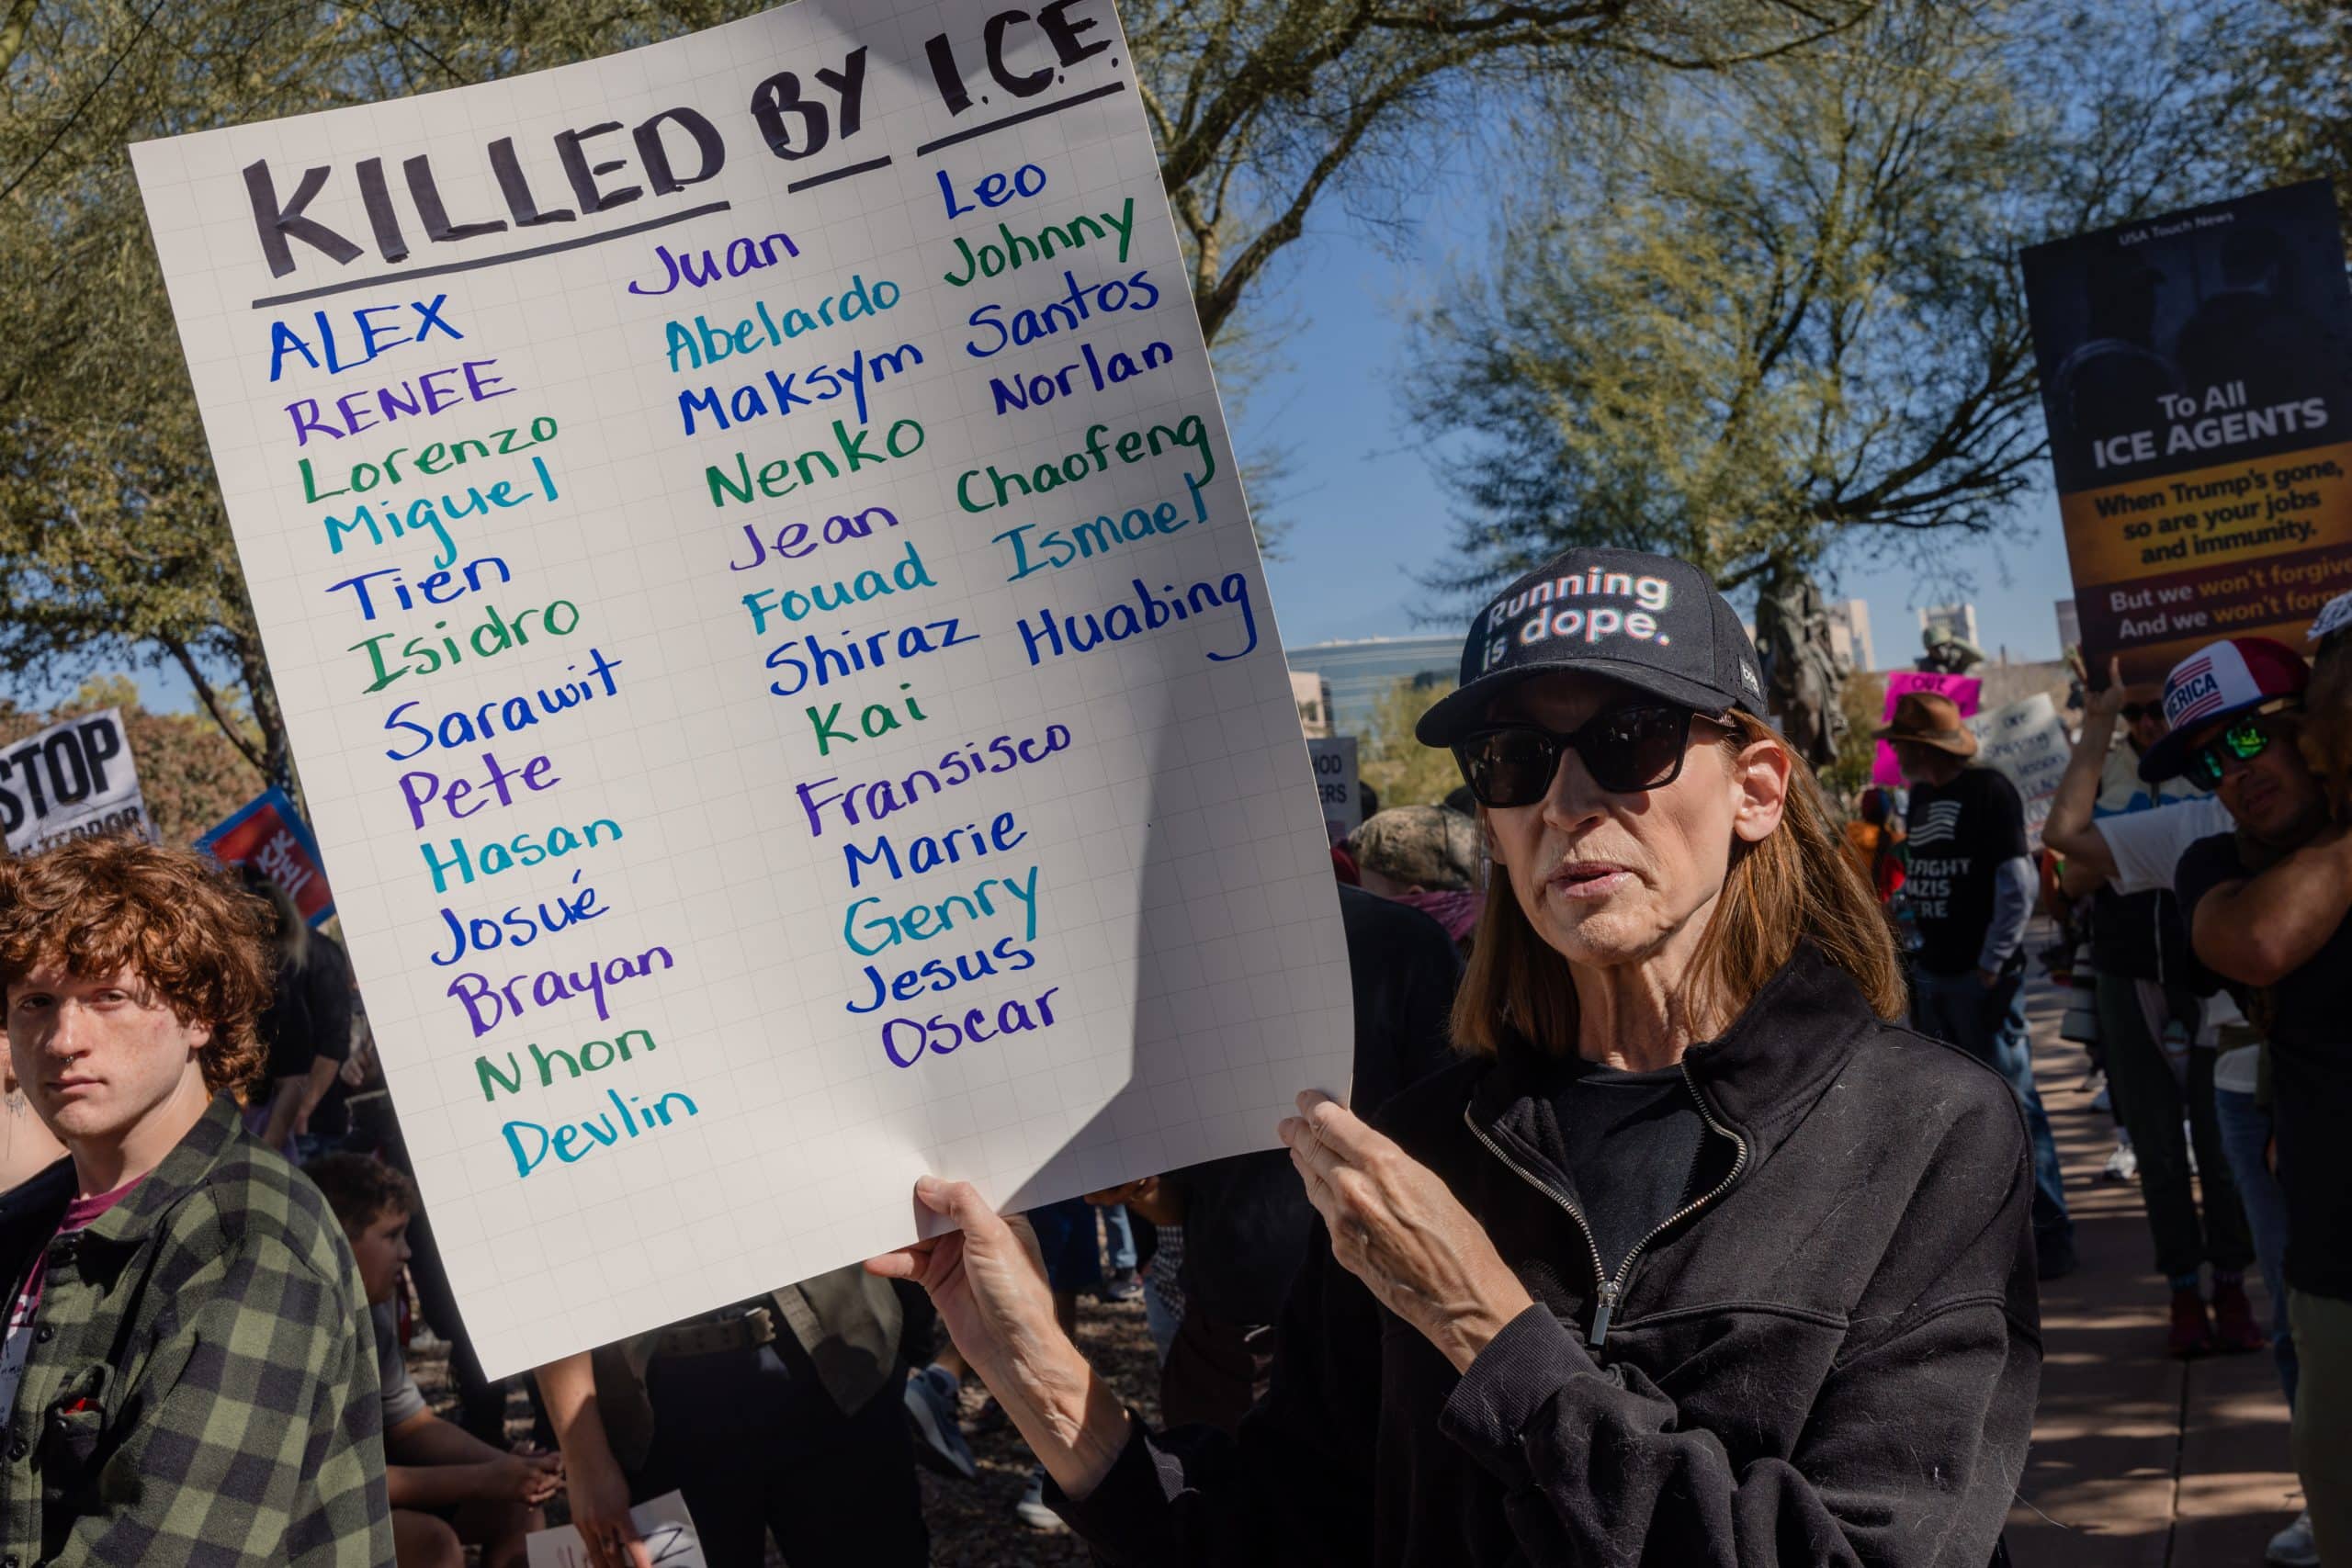 KILLED BY I.C.E.
ALEX
RENEE
Lorenzo
Miguel
Tien
Isidro
Sarawit
Pete
Hasan
Josué
Brayan
Nhon
Devlin
Juan
Abelardo
Maksym
Nenko
Jean
Fouad
Shiraz
Kai
Fransisco
Marie
Genry
Jesus
Oscar
Leo
Johnny
Santos
Norlan
Chaofeng
Ismael
Huabing
Running
is dope.
STOP
USA Touch News
To All
ICE AGENTS
When Trump's gone,
so are your jobs
and immunity.
But we won't forgive
And we won't
OUR